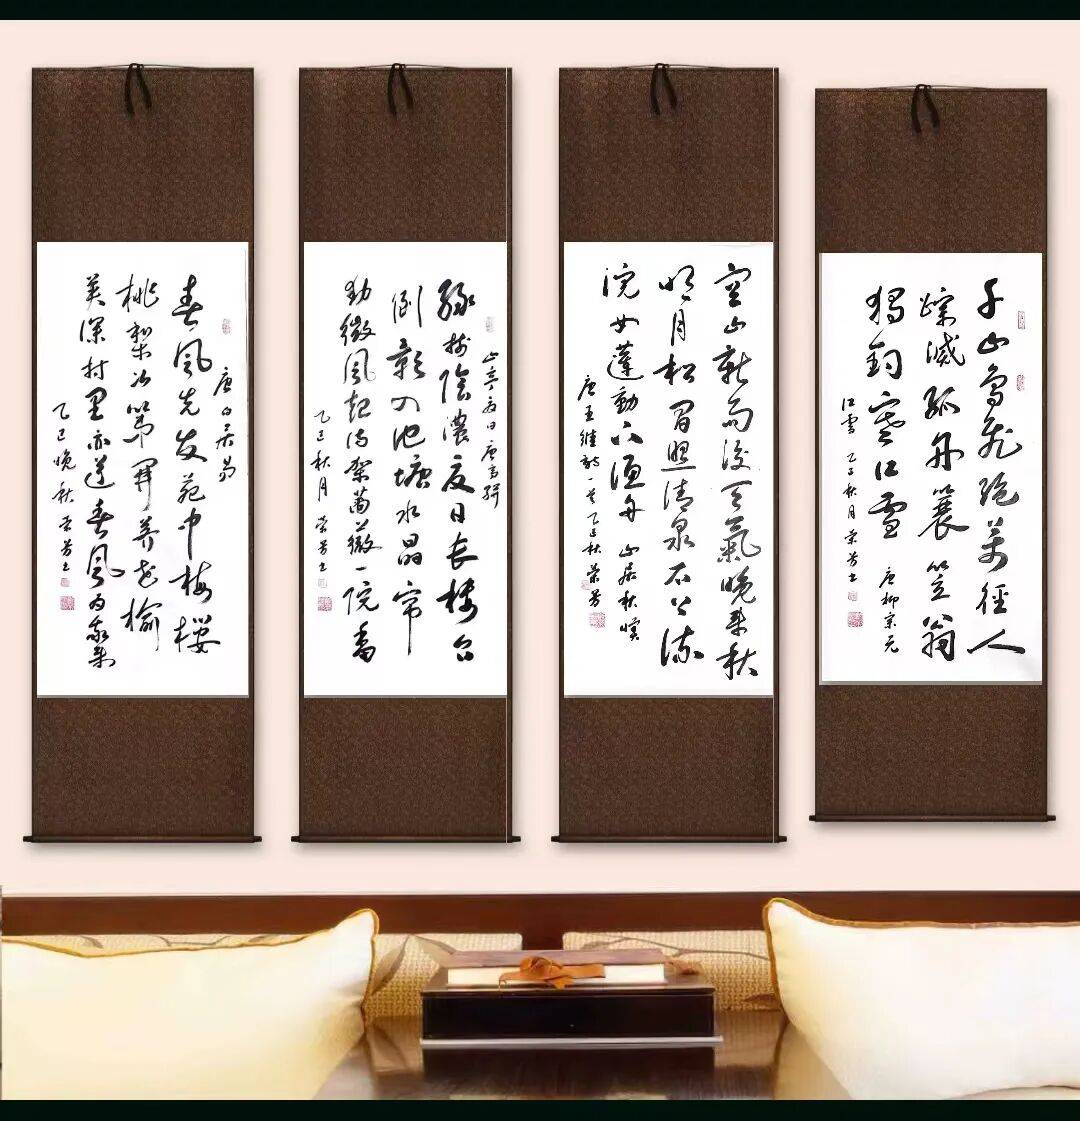 唐白居易
春風先发苑中梅櫻
桃梨次第開荠花榆
荚深村里亦道春風为我来
乙巳晚秋荣芳书
山亭夏日唐高骈
緑樹陰濃夏日長楼台
倒影入池塘水晶帘
動微風起满架薔薇一院香
乙巳秋月荣芳书
空山新雨後天氣晚来秋
明月松间照清泉石上流
浣女蓮動下渔舟山居秋暝
唐王维詩一首乙巳秋荣芳
千山鸟飞绝萬径人
踪滅孤舟蓑笠翁
獨钓寒江雪唐柳宗元
江雪乙巳秋月荣芳书